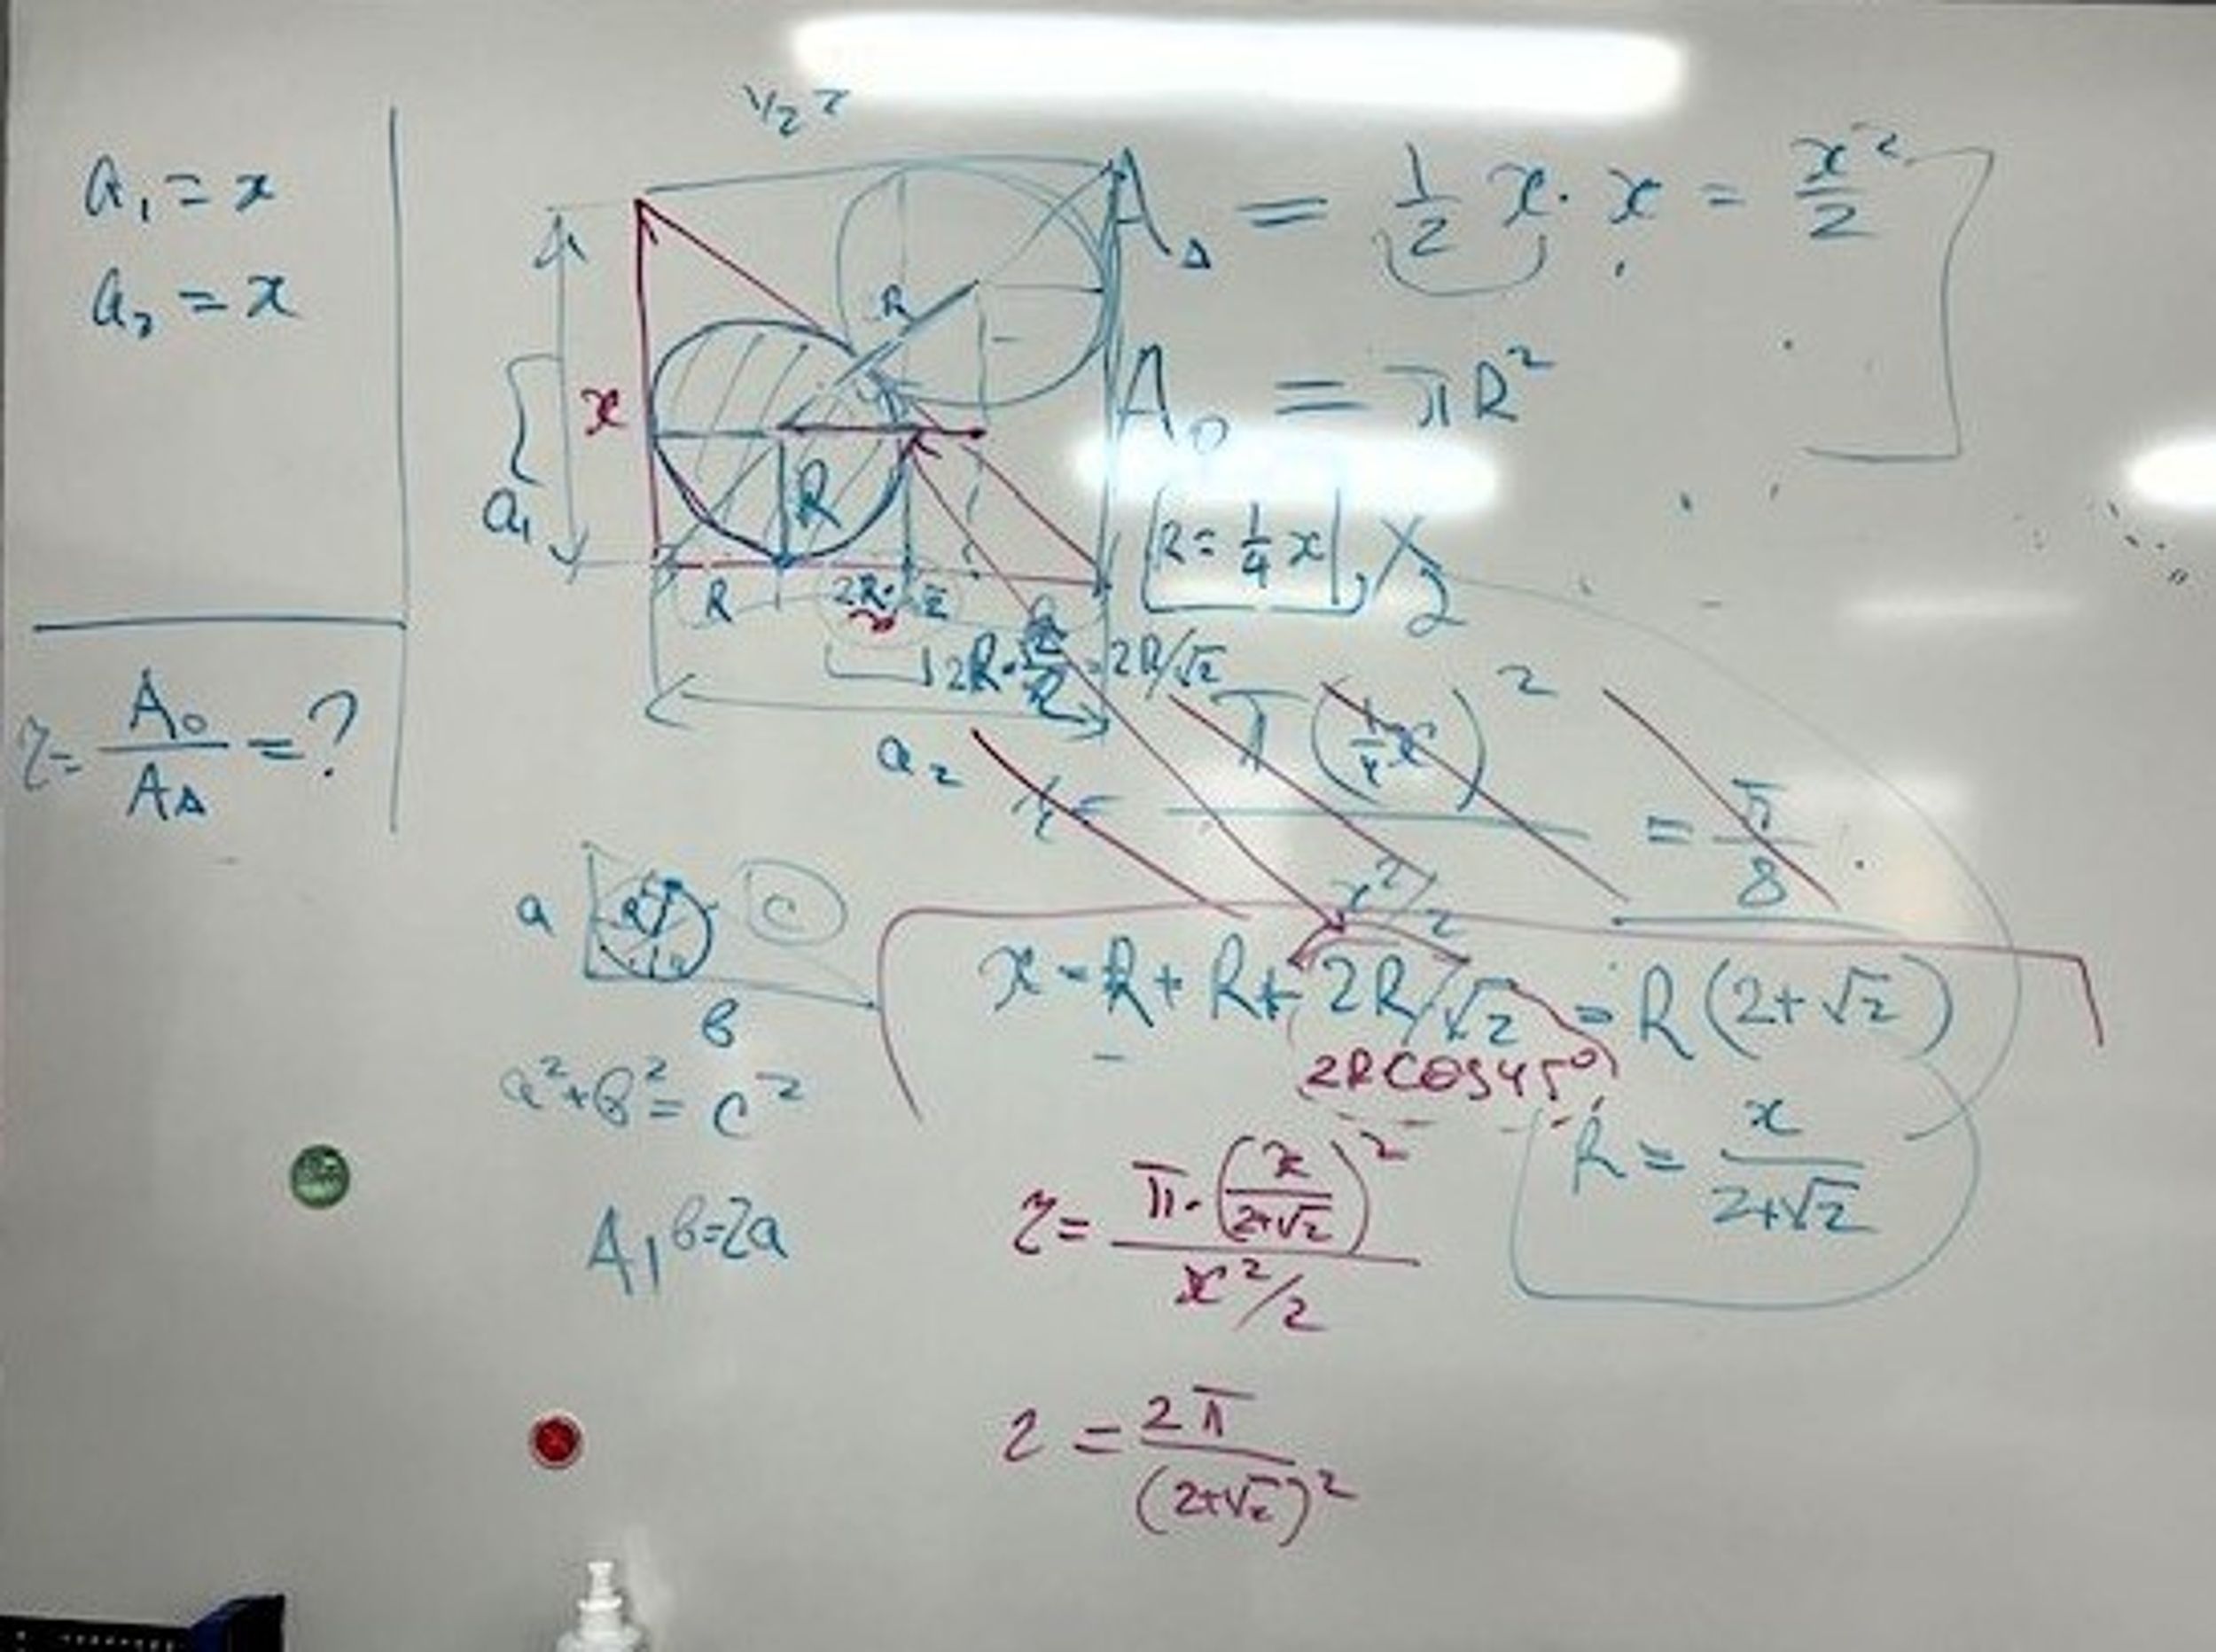 a₁ = x
a₂ = x
η = A₀/A△ = ?
½ ?
A△ = ½ x · x = x²/2
A₀ = πR²
R = ¼ x
R
x
R
a₁
R
2R/√2
a₂
π(¼x)² / x²/2 = π/8
a
R
c
b
a² + b² = c²
b=2a
x = R + R + 2R/√2 = R(2+√2)
2R cos 45°
R = x/2+√2
η = π·(x/2+√2)² / x²/2
η = 2π/(2+√2)²